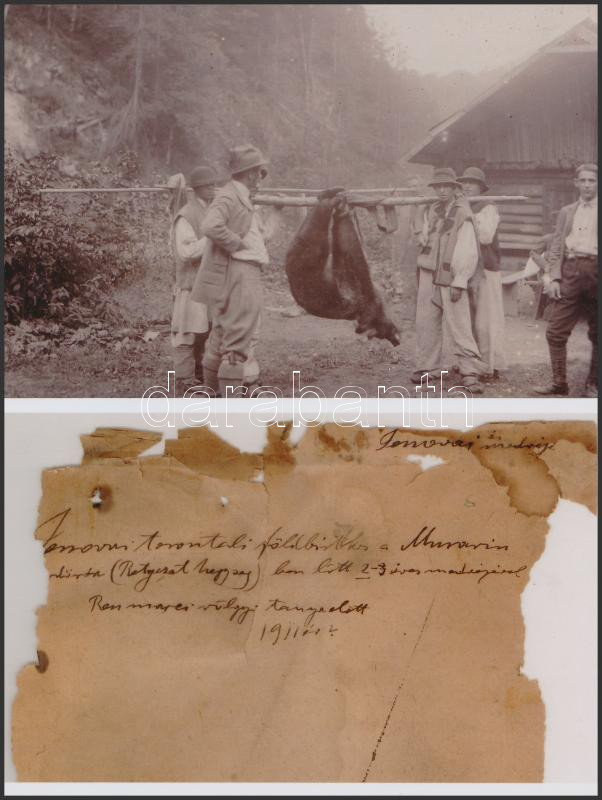 darabanth
Jenovai és
medvéje
Jenovai torontali földbirtokos a Murarin
(Retyezat hegyseg) ban lött 2-3 éves medvéjével
Riu mares völgyi tanya előtt
1911 év?